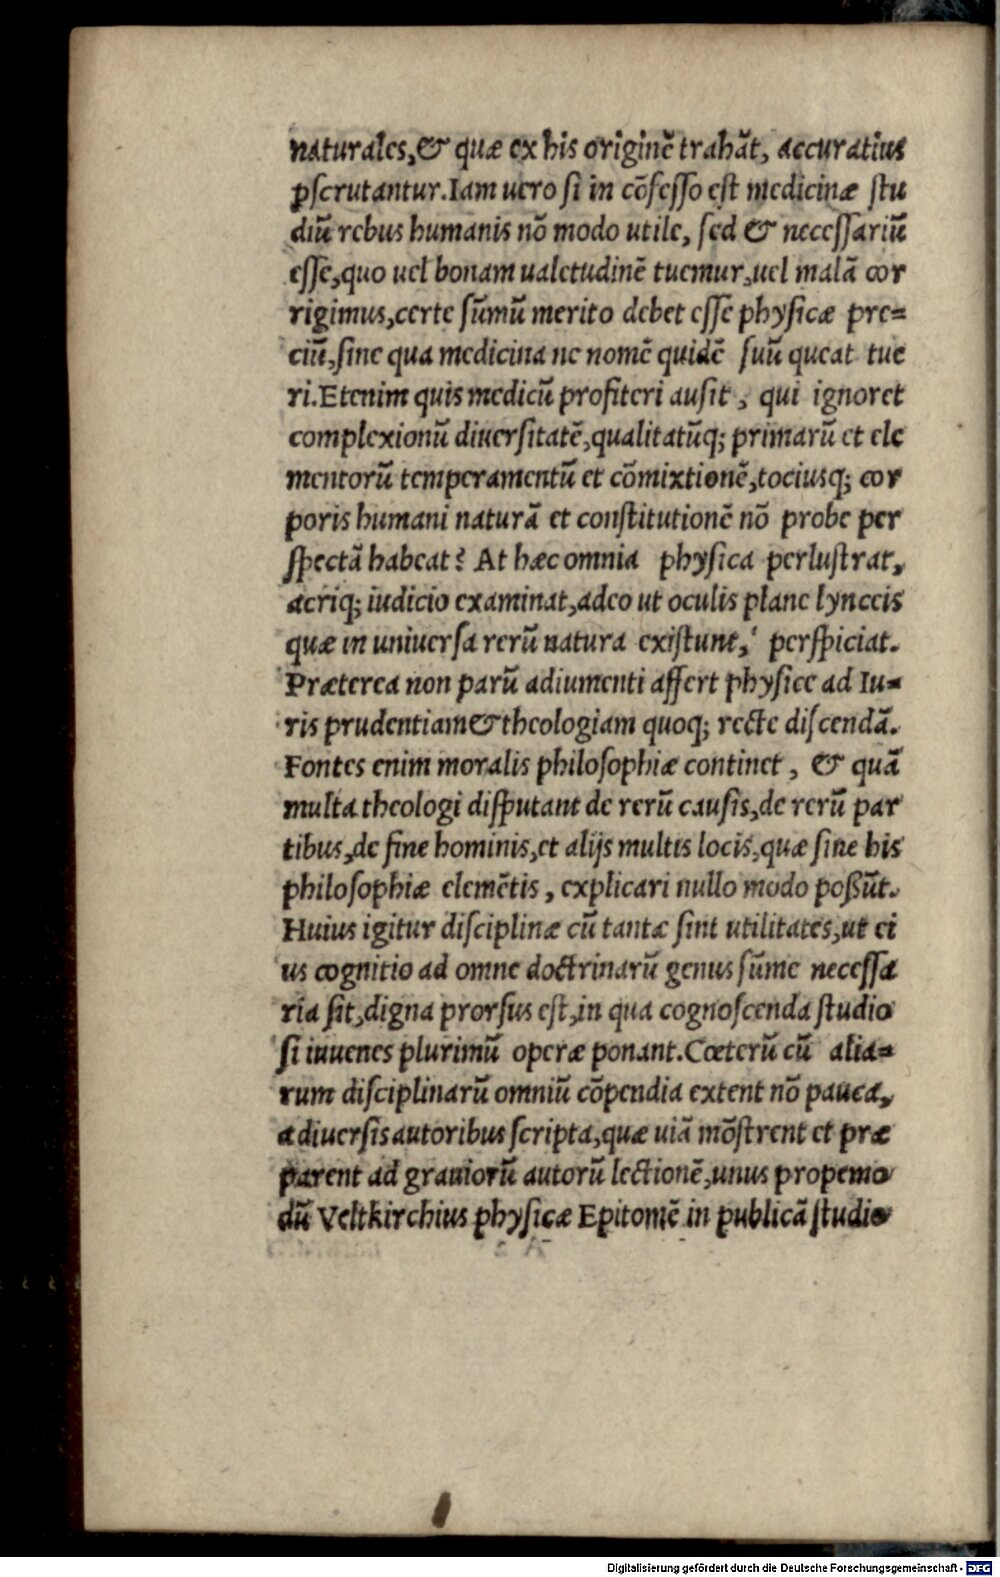 naturales,& quæ ex his originẽ trahãt, accuratius
pscrutantur.Iam uero si in cõfesso est medicinæ stu
diũ rebus humanis nõ modo utile, sed & necessariũ
esse,quo uel bonam ualetudinẽ tuemur,uel malã cor
rigimus,certe sũmũ merito debet esse physicæ pre=
ciũ,sine qua medicina ne nomẽ quidẽ suũ queat tue
ri.Etenim quis medicũ profiteri ausit, qui ignoret
complexionũ diuersitatẽ,qualitatũq; primarũ et ele
mentorũ temperamentũ et cõmixtionẽ,tociusq; cor
poris humani naturã et constitutionẽ nõ probe per
spectã habeat? At hæc omnia physica perlustrat,
acriq; iudicio examinat,adeo ut oculis plane lynceis
quæ in uniuersa rerũ natura existunt, perspiciat.
Præterea non parũ adiumenti affert physice ad Iu=
ris prudentiam& theologiam quoq; recte discendã.
Fontes enim moralis philosophiæ continet, & quã
multa theologi disputant de rerũ causis,de rerũ par
tibus,de fine hominis,et alijs multis locis,quæ sine his
philosophiæ elemẽtis, explicari nullo modo poßũt.
Huius igitur disciplinæ cũ tantæ sint utilitates,ut ei
us cognitio ad omne doctrinarũ genus sũme necessa
ria sit,digna prorsus est,in qua cognoscenda studio
si iuuenes plurimũ operæ ponant.Cæterũ cũ alia=
rum disciplinarũ omniũ cõpendia extent nõ pauca,
a diuersis autoribus scripta,quæ uiã mõstrent et præ
parent ad grauiorũ autorũ lectionẽ,unus propemo
dũ Veltkirchius physicæ Epitomẽ in publicã studio
Digitalisierung gefördert durch die Deutsche Forschungsgemeinschaft - DFG